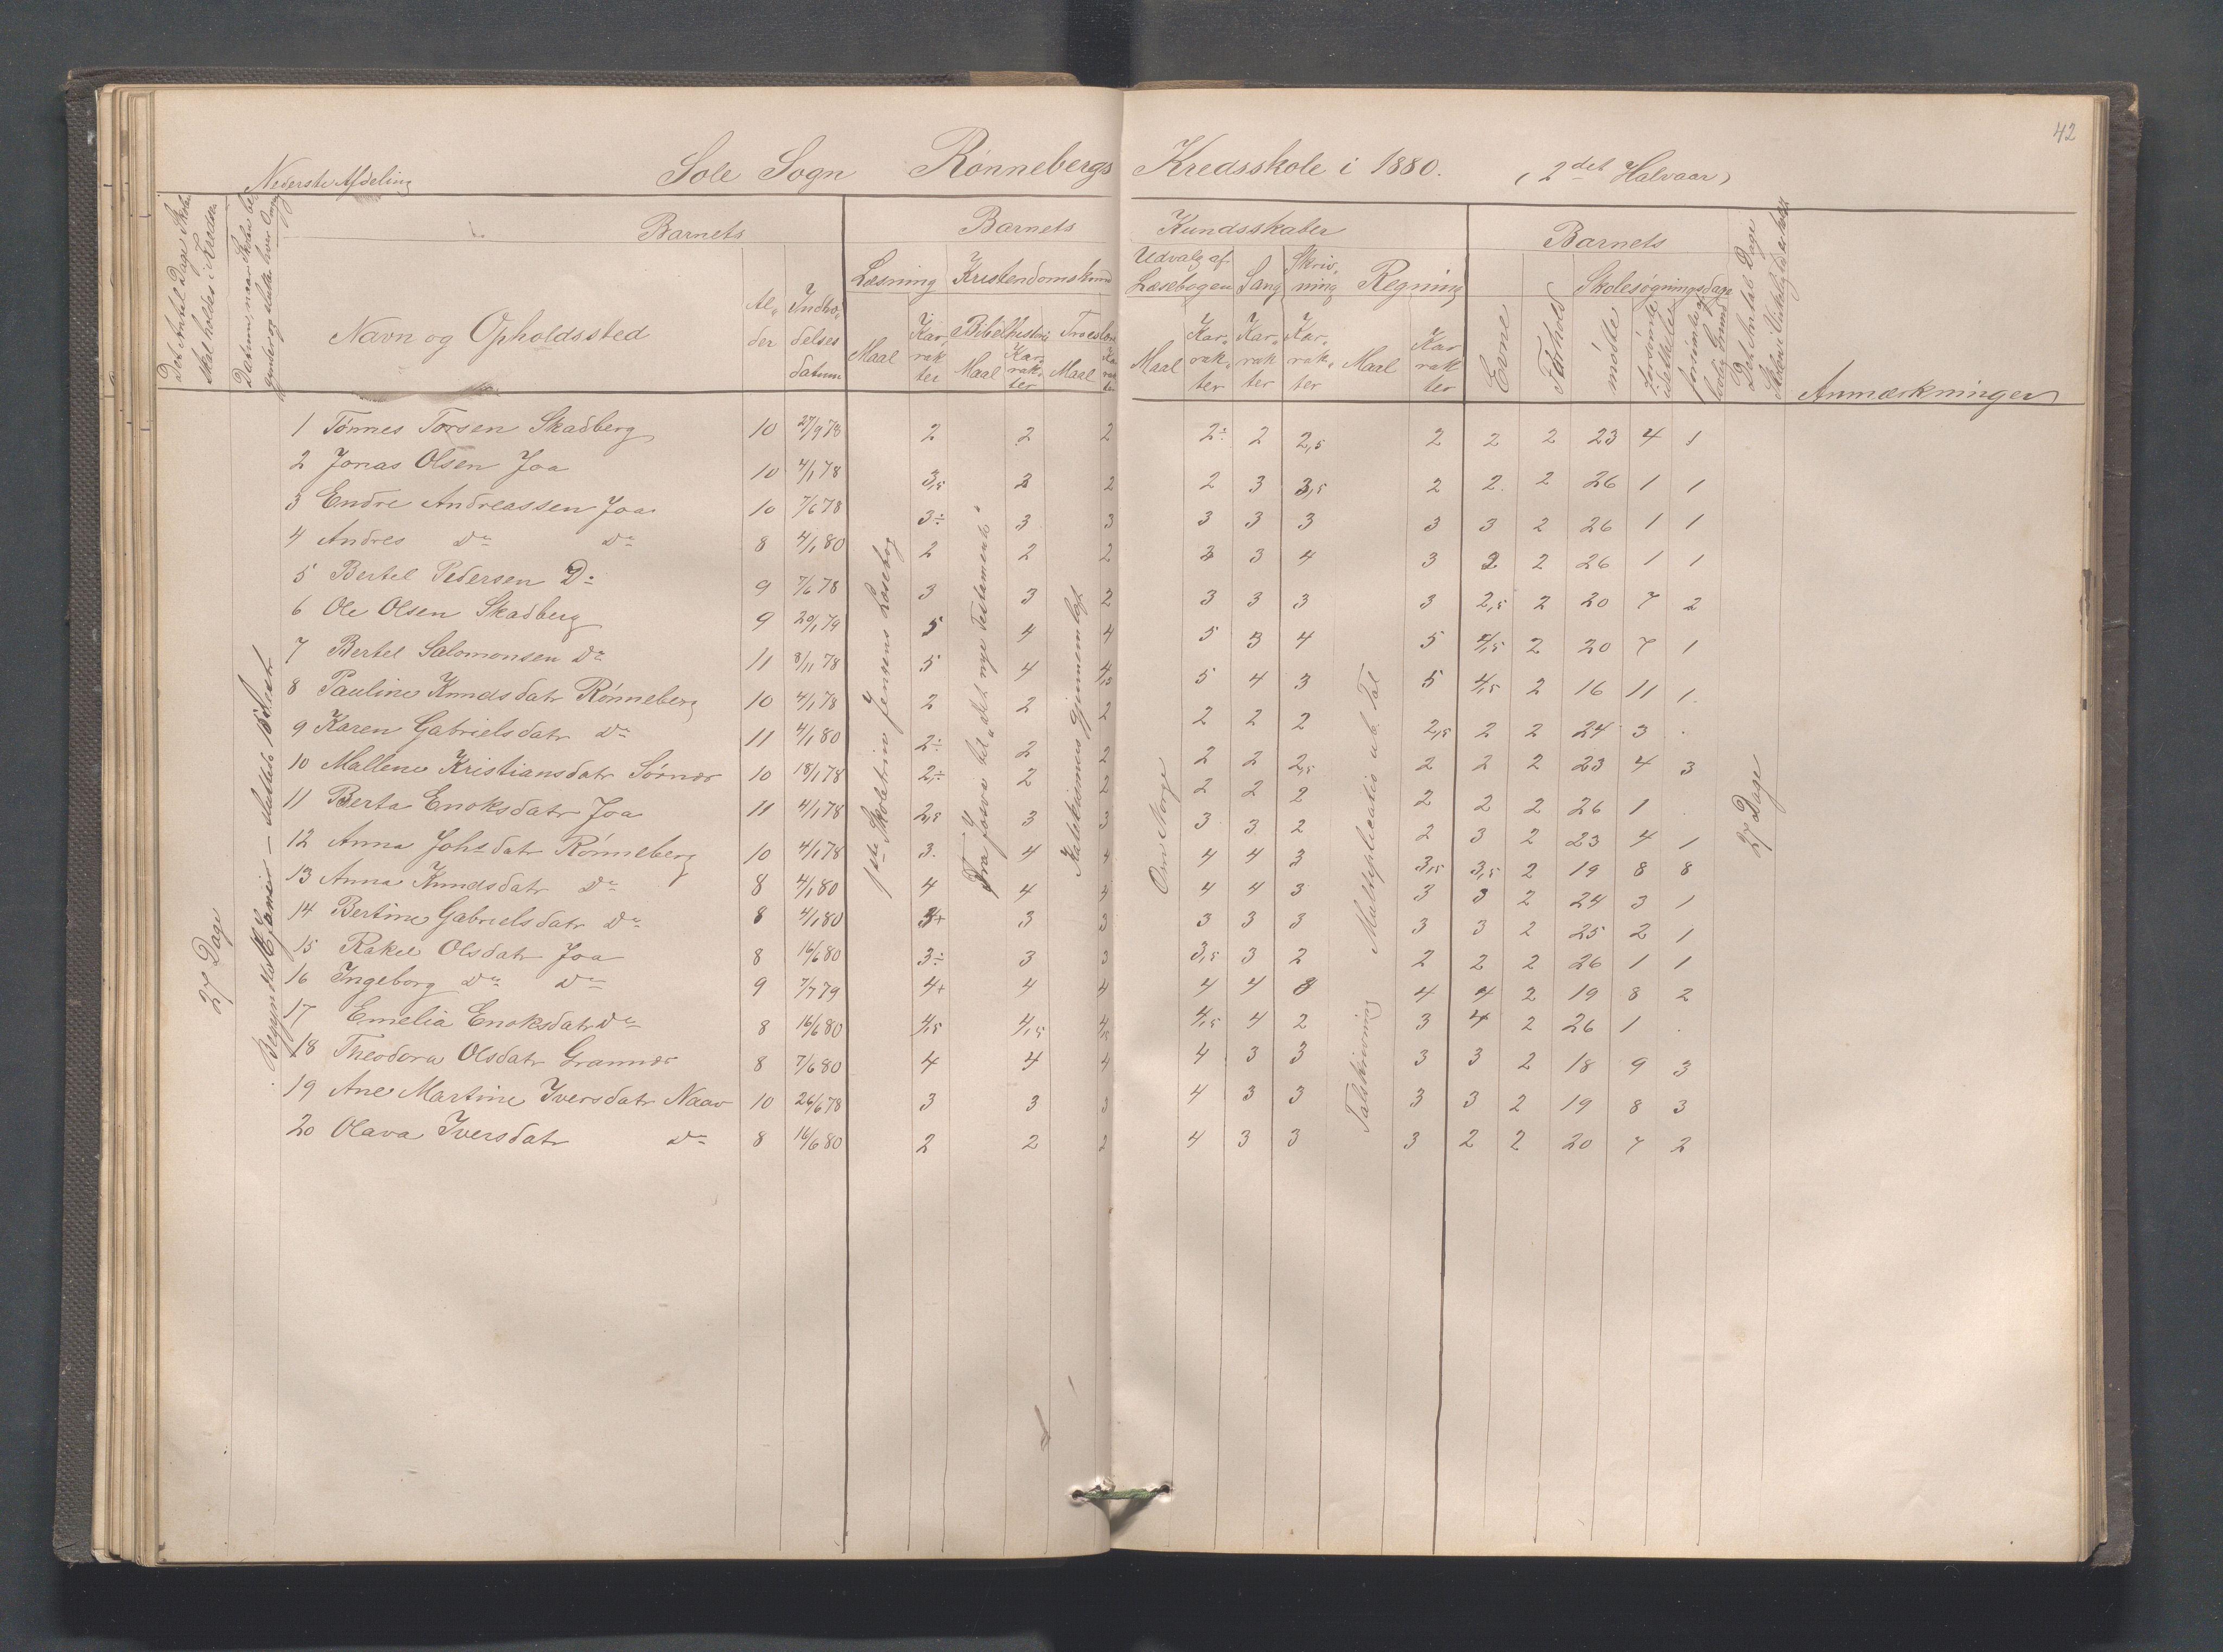 42
Nederste Afdeling
Sole Sogn Rønnebergs Kredsskole i 1880. (2det Halvaar)
Det Antal Dage Skolen skal holdes i Kredsen
Datum, naar Skolen begynder og slutter hver Omgang
Barnets
Barnets Kundsskaber
Barnets
Navn og Opholdssted
Alder
Indtrædelsesdatum
Læsning
Kristendomskund
Udvalg af Læsebogen
Sang
Skrivning
Regning
Skolesøgningsdage
Maal
Karrakter
Bibelhistorie
Maal
Karrakter
Troeslære
Maal
Karrakter
Maal
Karrakter
Karrakter
Karrakter
Maal
Karrakter
Evne
Forhold
mødte
forsømte
forsømte af lovlig Grund
Det Antal Dage Skolen i Virkelighed er holdt
Anmærkninger
1 Tönnes Torsen Skadberg 10 27/9 78 2 2 2 2÷ 2 2,5 2 2 2 23 4 1
2 Jonas Olsen Joa 10 4/1 78 3,5 3 2 2 3 3,5 2 2 2 26 1 1
3 Endre Andreassen Joa 10 7/6 78 3÷ 3 3 3 3 3 3 3 2 26 1 1
4 Andres Do Do 8 4/1 80 2 2 2 3 3 4 3 2 2 26 1 1
5 Bertel Pedersen Do 9 7/6 78 3 3 2 3 3 3 3 2,5 2 20 7 2
6 Ole Olsen Skadberg 9 20/1 79 5 4 4 5 3 4 5 4,5 2 20 7 1
7 Bertel Salomonsen Do 11 8/11 78 5 4 4,5 5 4 3 5 4,5 2 16 11 1.
8 Pauline Knudsdatr Rønneberg 10 4/1 78 2 2 2 2 2 2 2,5 2 2 24 3 .
9 Karen Gabrielsdatr Do 11 4/1 80 2÷ 2 2 2 2 2,5 2 2 2 23 4 3
10 Mallene Kristiansdatr Sörnæs 10 18/1 78 2÷ 2 2 2 2 2 2 2 2 26 1 .
11 Berta Enoksdatr Joa 11 4/1 78 2,5 3 3 3 3 2 2 3 2 23 4 1
12 Anna Johsdatr Rønneberg 10 4/1 78 3. 4 4 4 4 3 3,5 3,5 2 19 8 8
13 Anna Knudsdatr Do 8 4/1 80 4 4 4 4 4 3 3 3 2 24 3 1
14 Bertine Gabrielsdatr Do 8 4/1 80 3+ 3 3 3 3 3 3 3 2 25 2 1
15 Rakel Olsdatr Joa 8 16/6 80 3÷ 3 3 3,5 3 2 2 2 2 26 1 1
16 Ingeborg Do Do 9 7/7 79 4+ 4 4 4 4 3 4 4 2 19 8 2
17 Emelia Enoksdatr Do 8 16/6 80 4,5 4,5 4,5 4,5 4 2 3 4 2 26 1 .
18 Theodora Olsdatr Grannæs 8 7/6 80 4 4 4 4 3 3 3 3 2 18 9 3
19 Ane Martine Iversdatr Naav 10 26/6 78 3 3 3 4 3 3 3 3 2 19 8 3
20 Olava Iversdatr Do 8 16/6 80 2 2 2 4 3 3 3 2 2 20 7 2
27 Dage
1ste Skoletrin Jensens Læsebog
Fra Josva til "det nye Testamente"
Katekismus gjennemlæst
Om Norge
Talskrivning
Multiplication ub. Tal
27 Dage